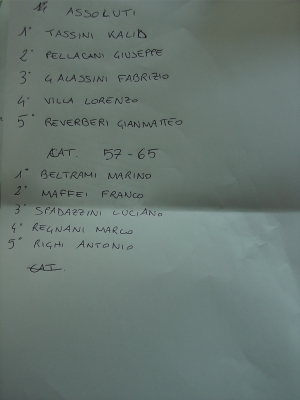 ASSOLUTI
1° TASSINI KALID
2° PELLACANI GIUSEPPE
3° GALASSINI FABRIZIO
4° VILLA LORENZO
5° REVERBERI GIANMATTEO
CAT. 57-65
1° BELTRAMI MARINO
2° MAFFEI FRANCO
3° SPADAZZINI LUCIANO
4° REGNANI MARCO
5° RIGHI ANTONIO